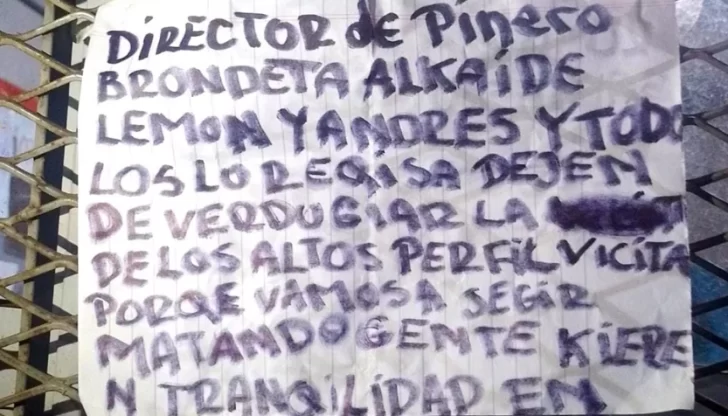 DiRECTOR de Pinero
BRONDETA ALKAiDE
LEMON Y ANDRES Y TODO
LOS LO REQiSA DEJEN
DE VERDUGiAR LA
DE LOS ALTOS PERFiL ViCiTA
PORQE VAMOSA SEGiR
MATANDO GENTE KiERE
N TRANQiLiDAD EN